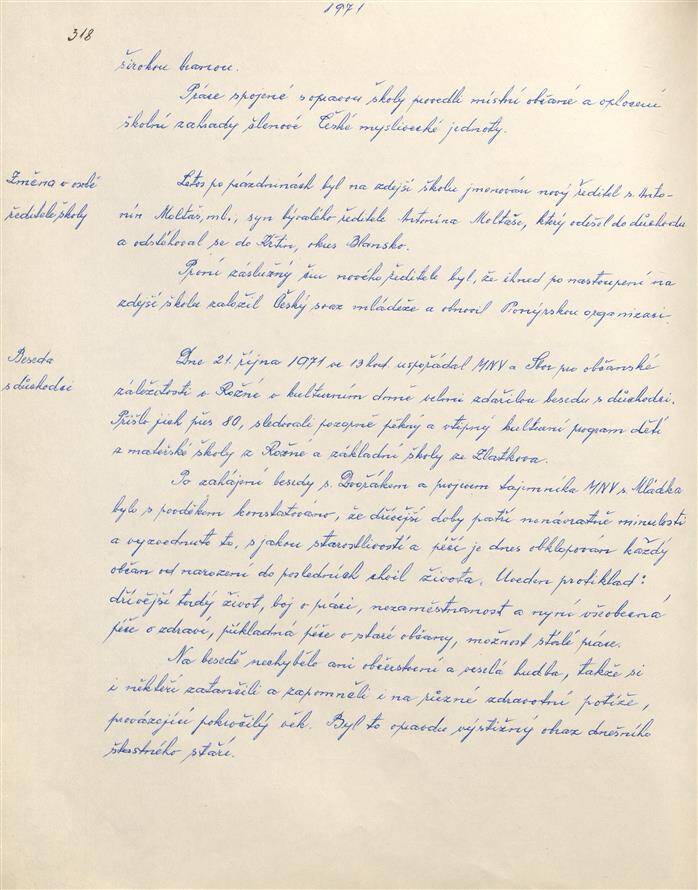 1971
318
širokou barvou.
Práce spojené s opravou školy provedli místní občané a oplocení
školní zahrady členové České myslivecké jednoty.
Změna v osobě
ředitele školy
Letos po prázdninách byl na zdejší školu jmenován nový ředitel s. Anto-
nín Moltaš, ml., syn bývalého ředitele Antonína Moltaše, který odešel do důchodu
a odstěhoval se do Křtin, okres Blansko.
První záslužný čin nového ředitele byl, že ihned po nastoupení na
zdejší školu založil Český svaz mládeže a obnovil Pionýrskou organizaci.
Beseda
s důchodci
Dne 21. října 1971 ve 13 hod. uspořádal MNV a Sbor pro občanské
záležitosti v Rožné v kulturním domě velmi zdařilou besedu s důchodci.
Přišlo jich přes 80, sledovali pozorně pěkný a vtipný kulturní program dětí
z mateřské školy z Rožné a základní školy ze Zlatkova.
Po zahájení besedy s. Dvořákem a projevu tajemníka MNV s. Mládka
bylo s povděkem konstatováno, že dřívější doby patří nenávratně minulosti
a vyzvednuto to, s jakou starostlivostí a péčí je dnes obklopován každý
občan od narození do posledních chvil života. Uveden protiklad:
dřívější tvrdý život, boj o práci, nezaměstnanost a nyní všeobecná
péče o zdraví, příkladná péče o staré občany, možnost stálé práce.
Na besedě nechybělo ani občerstvení a veselá hudba, takže si
i někteří zatančili a zapomněli i na různé zdravotní potíže,
provázející pokročilý věk. Byl to opravdu výstižný obraz dnešního
šťastného stáří.